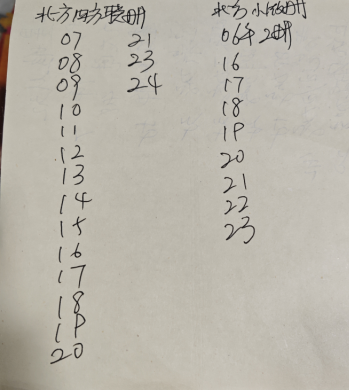 北方四方联册
07
08
09
10
11
12
13
14
15
16
17
18
19
20
21
23
24
北方小版册
06年2册
16
17
18
19
20
21
22
23